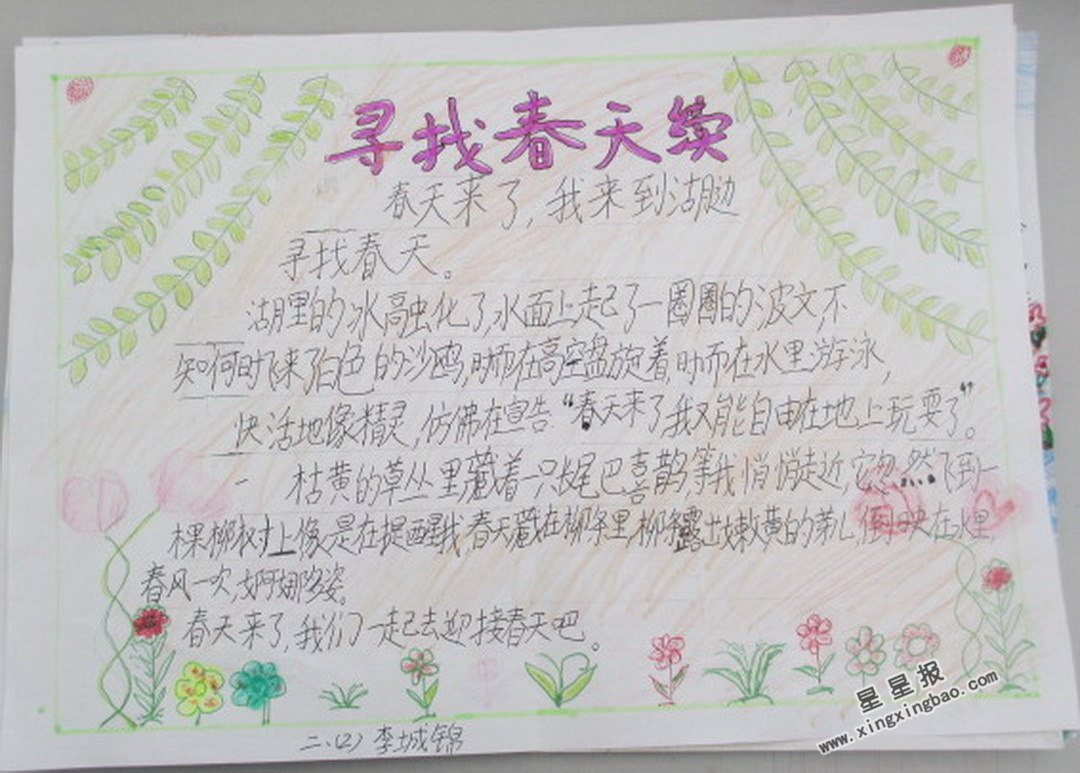 寻找春天续
春天来了,我来到湖边
寻找春天。
湖里的冰融化了,水面上起了一圈圈的波文,不
知何时飞来了白色的沙鸥,时而在高空盘旋着,时而在水里游泳,
快活地像精灵,仿佛在宣告“春天来了我又能自由在地上玩耍了”。
一 枯黄的草丛里藏着一只长尾巴喜鹊,等我悄悄走近它忽然飞到一
棵柳树上像是在提醒我,春天藏在柳条里,柳条露出嫩黄的芽儿,倒映在水里
春风一吹,婀娜多姿。
春天来了,我们一起去迎接春天吧。
二、(2) 李城锦
星星报
www.xingxingbao.com